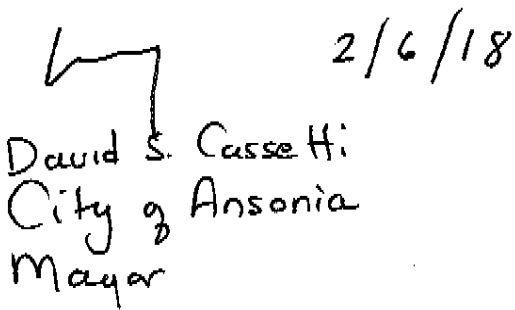 2/6/18
David S. Cassetti
City of Ansonia
Mayor